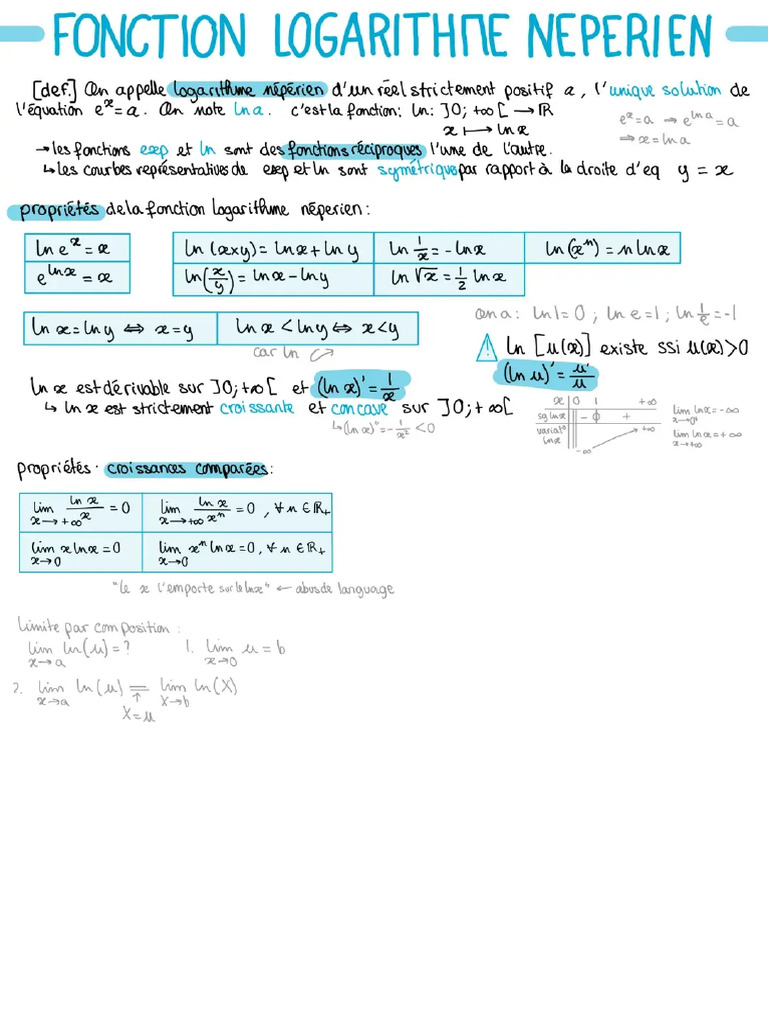 FONCTION LOGARITHME NEPERIEN
[def.] On appelle logarithme népérien d'un réel strictement positif a, l'unique solution de
l'équation eˣ = a. On note ln a. c'est la fonction: ln: ]0; +∞[ → ℝ
x ↦ ln x
eˣ = a ⇒ e^(ln a) = a
⇒ x = ln a
→ les fonctions exp et ln sont des fonctions réciproques l'une de l'autre.
↳ les courbes représentatives de exp et ln sont symétrique par rapport à la droite d'eq y = x
propriétés de la fonction logarithme néperien:
ln eˣ = x
e^(ln x) = x
ln (x×y) = ln x + ln y
ln 1/x = -ln x
ln (xⁿ) = n ln x
ln(x/y) = ln x - ln y
ln √x = 1/2 ln x
ln x = ln y ⇔ x = y
ln x < ln y ⇔ x < y
car ln ↗
on a: ln 1 = 0 ; ln e = 1 ; ln 1/e = -1
⚠ ln [u(x)] existe ssi u(x) > 0
(ln u)' = u'/u
ln x est dérivable sur ]0; +∞[ et (ln x)' = 1/x
↳ ln x est strictement croissante et concave sur ]0; +∞[
↳ (ln x)'' = -1/x² < 0
x 0 1 +∞
sg ln x - 0 +
variat° ln x -∞ +∞
lim ln x = -∞
x→0⁺
lim ln x = +∞
x→+∞
propriétés · croissances comparées:
lim ln x / x = 0
x→+∞
lim ln x / xⁿ = 0, ∀ n ∈ ℝ₊
x→+∞
lim x ln x = 0
x→0
lim xⁿ ln x = 0, ∀ n ∈ ℝ₊
x→0
"le x l'emporte sur le ln x" ← abus de language
limite par composition :
lim ln(u) = ?
x→a
1. lim u = b
x→0
2. lim ln(u) = lim ln(X)
x→a X→b
↑
X = u